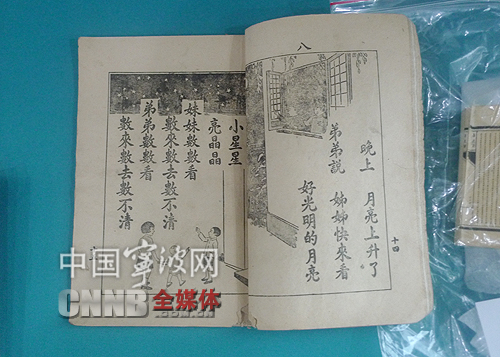 八
晚上 月亮上升了
弟弟說 姊姊快來看
好光明的月亮
十四
小星星
亮晶晶
妹妹數數看
數來數去數不清
弟弟數數看
數來數去數不清
中国寧波网
CNNB 全媒体
.com.cn